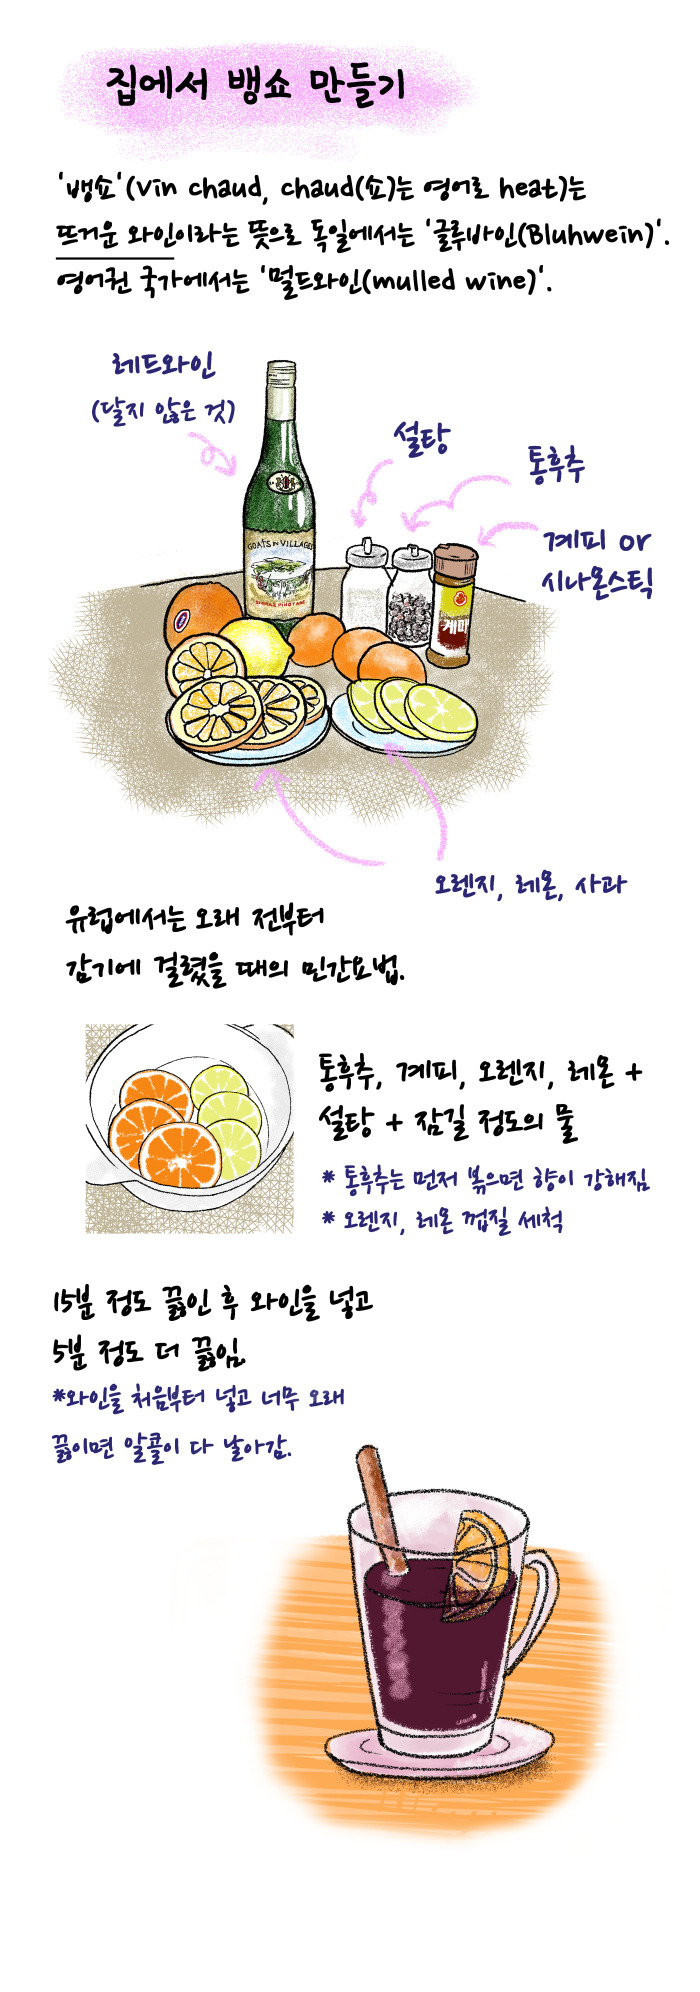 집에서 뱅쇼 만들기
'뱅쇼'(vin chaud, chaud(쇼)는 영어로 heat)는
뜨거운 와인이라는 뜻으로 독일에서는 '글루바인(Bluhwein)'.
영어권 국가에서는 '멀드와인(mulled wine)'.
레드와인
(달지 않은 것)
설탕
통후추
계피 or
시나몬스틱
GOATS DO VILLAGES
SHIRAZ PINOTAGE
계피
오렌지, 레몬, 사과
유럽에서는 오래 전부터
감기에 걸렸을 때의 민간요법.
통후추, 계피, 오렌지, 레몬 +
설탕 + 잠길 정도의 물
* 통후추는 먼저 볶으면 향이 강해짐
* 오렌지, 레몬 껍질 세척
15분 정도 끓인 후 와인을 넣고
5분 정도 더 끓임.
*와인을 처음부터 넣고 너무 오래
끓이면 알콜이 다 날아감.